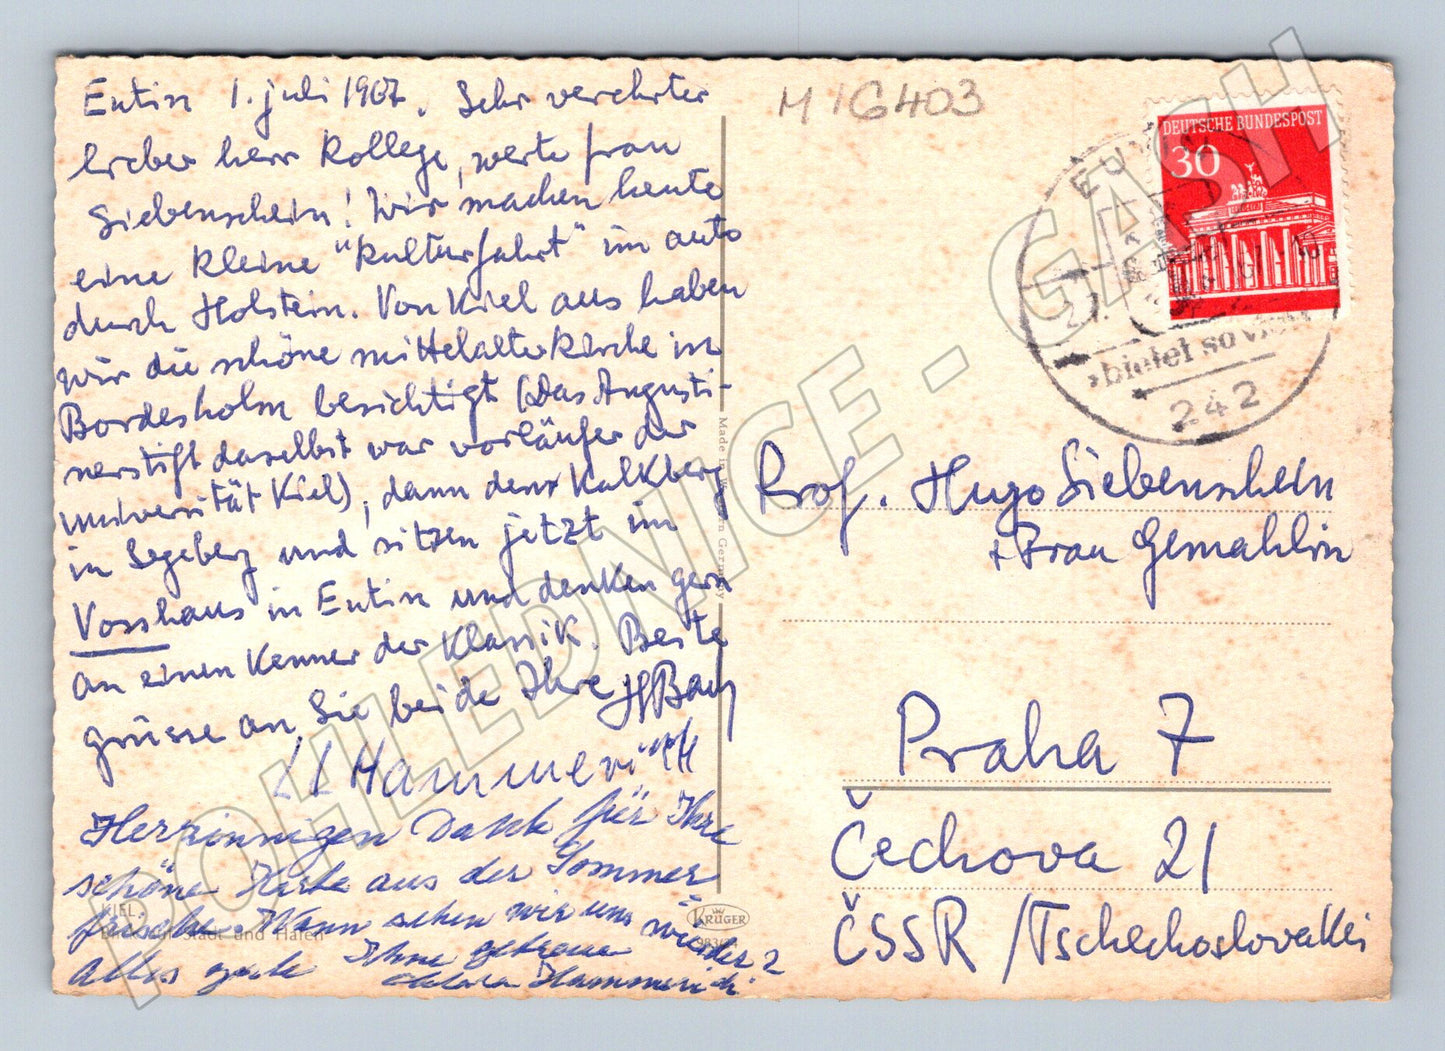 Eutin 1. juli 1967. Sehr verehrter
lieber herr Kollege, werte frau
Siebenschein! Wir machen heute
eine kleine "Kulturfahrt" im auto
durch Holstein. Von Kiel aus haben
wir die schöne mittelalterkirche in
Bordesholm besichtigt (Das Augusti-
nerstift daselbst war vorläufer der
universität Kiel), dann den Kalkberg
in Segeberg und sitzen jetzt im
Vosshaus in Eutin und denken gern
an einen Kenner der Klassik. Beste
grüsse an Sie beide Ihre
LL Hammerich
Herzinnigen Dank für Ihre
schöne Karte aus der Sommer
frische. Wann sehen wir uns wieder?
alles gute Ihre getreue
Clara Hammerich
KIEL,
Blick auf Stadt und Hafen
Made in Western Germany
KRÜGER
M 16403
DEUTSCHE BUNDESPOST
30
EUTIN
bietet so viel
242
Prof. Hugo Siebenschein
+ Frau Gemahlin
Praha 7
Čechova 21
ČSSR /Tschechoslovakei
POHLEDNICE - GASH